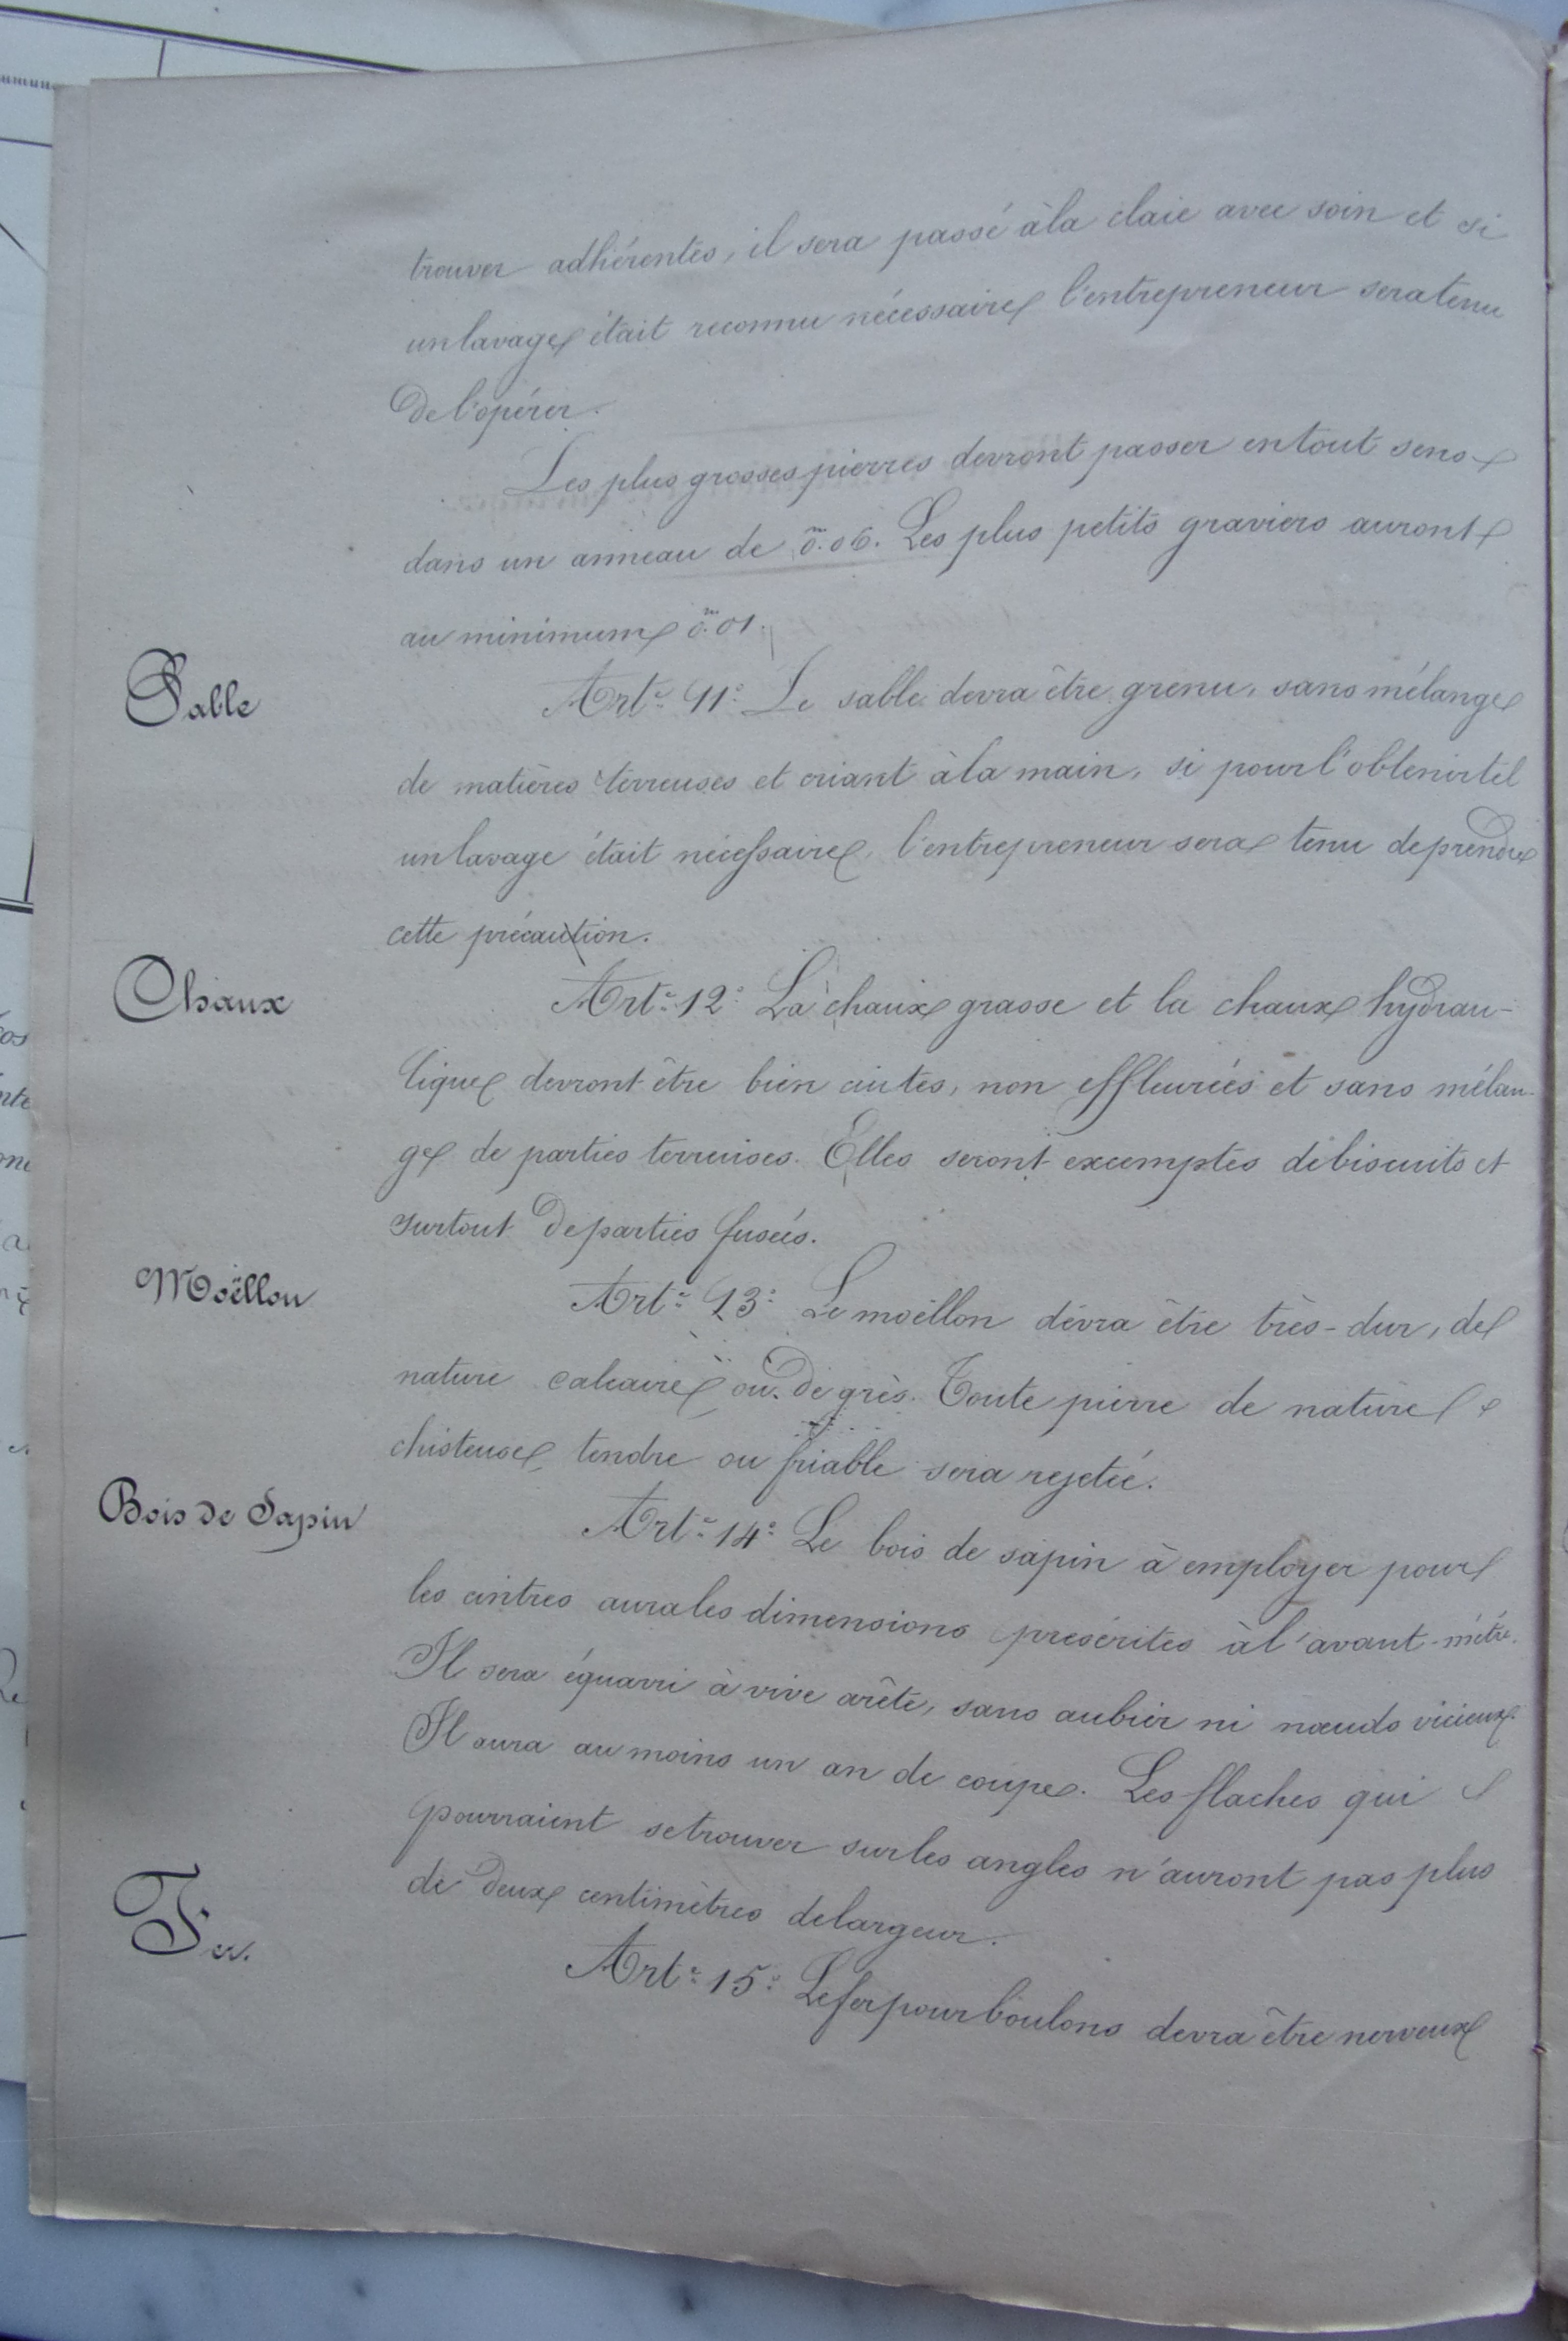 trouver adhérentes, il sera passé à la claie avec soin et si
un lavage était reconnu nécessaire l'entrepreneur sera tenu
de l'opérer.
Les plus grosses pierres devront passer en tout sens
dans un anneau de 0.ᵐ06. Les plus petits graviers auront
au minimum 0.ᵐ01.
Sable
Art.ᵉ 11.ᵉ Le sable devra être grenu, sans mélange
de matières terreuses et criant à la main, si pour l'obtenir tel
un lavage était nécessaire, l'entrepreneur sera tenu de prendre
cette précaution.
Chaux
Art.ᵉ 12.ᵉ La chaux grasse et la chaux hydrau-
lique devront être bien cuites, non effleurées et sans mélan-
ge de parties terreuses. Elles seront excemptes de biscuits et
surtout de parties fusées.
Moëllon
Art.ᵉ 13.ᵉ Le moëllon devra être très-dur, de
nature calcaire ou de grès. Toute pierre de nature
chisteuse, tendre ou friable sera rejetée.
Bois de Sapin
Art.ᵉ 14.ᵉ Le bois de sapin à employer pour
les cintres aura les dimensions prescrites à l'avant-métré.
Il sera équarri à vive arête, sans aubier ni nœuds vicieux.
Il aura au moins un an de coupe. Les flaches qui
pourraient se trouver sur les angles n'auront pas plus
de deux centimètres de largeur.
Fer.
Art.ᵉ 15.ᵉ Le fer pour boulons devra être nerveux